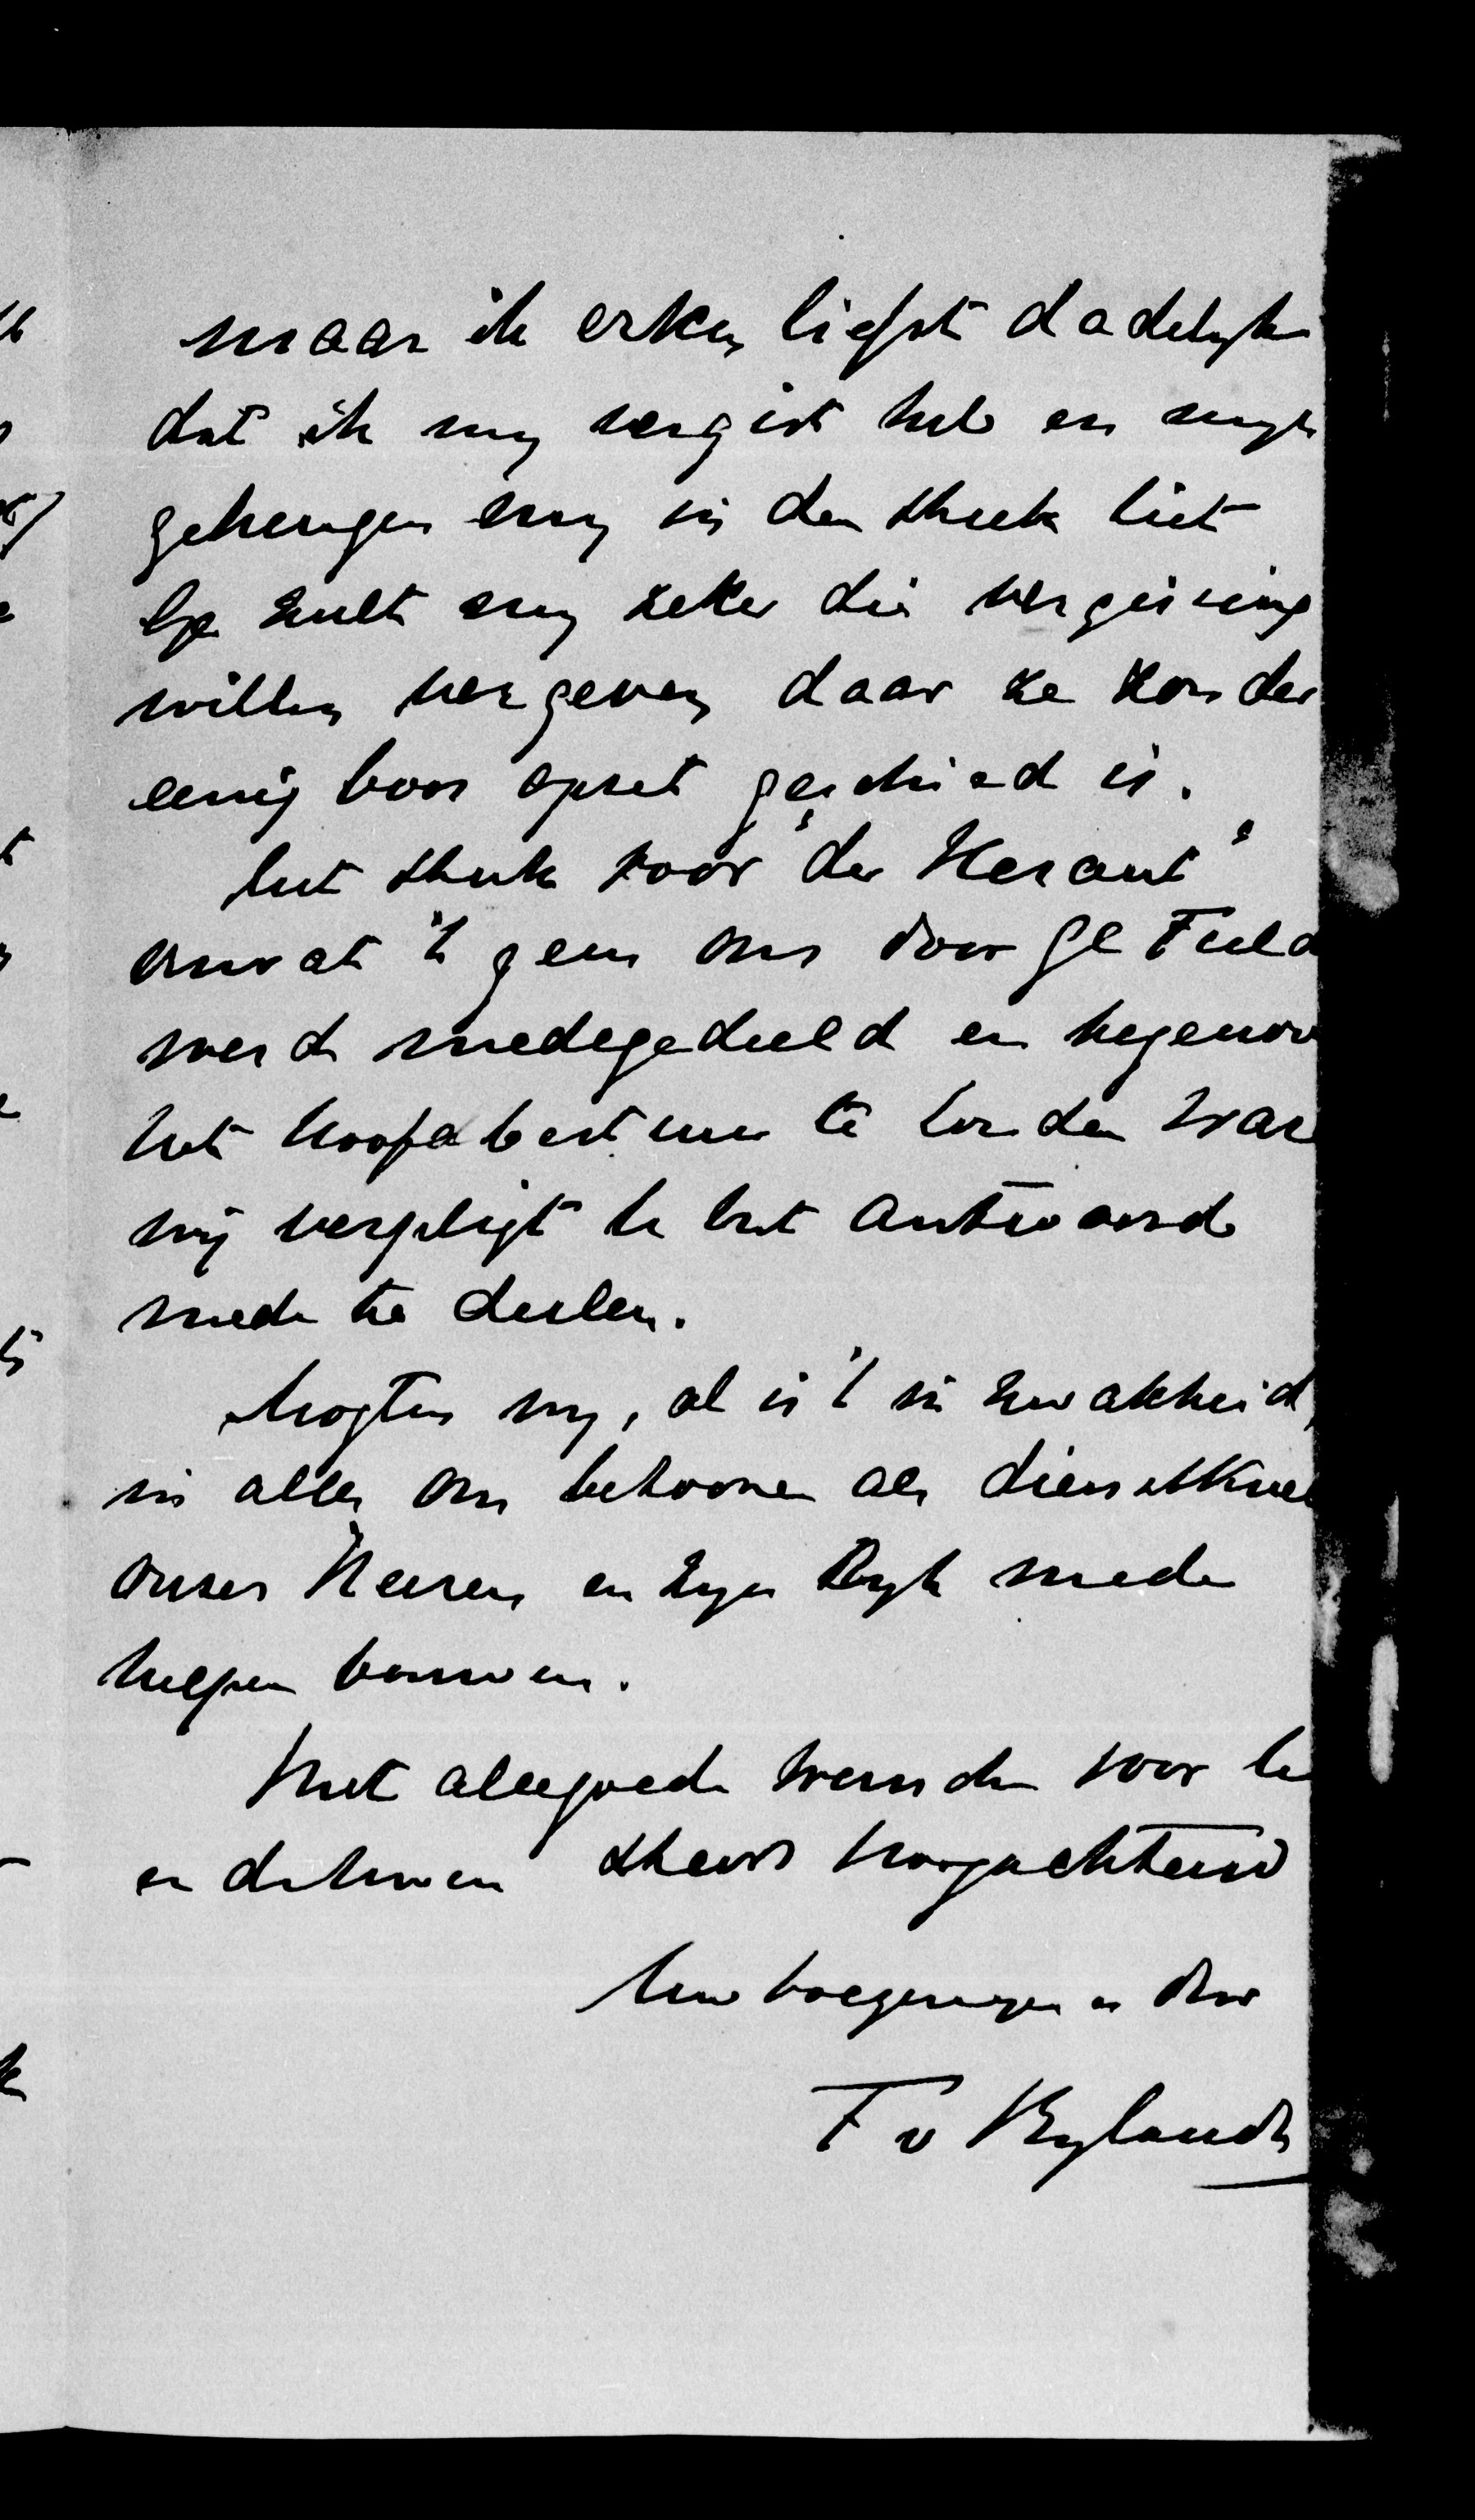 maar ik erken liefst dadelyk
dat ik my vergist heb en myn
geheugen my in den steek liet
Gy zult my zeker die vergissing
willen vergeven daar ze zonder
eenig boos opzet geschied is.
het stuk voor "de Heraut"
omvat 't geen ons door Gl Field
werd medegedeeld en tegenov
het hoofdbestuur te Londen war
wij verpligt te het antwoord
mede te deelen.
Mogten wy, al is 't in zwakheid,
in alles ons betoonen als dienstkne
onzes Heeren en Zyn Ryk mede
helpen bouwen.
Met alle goede wenschen voor U
en de Uwen steeds hoogachtend
Uw toegenegen Dnr
F v Bylandt